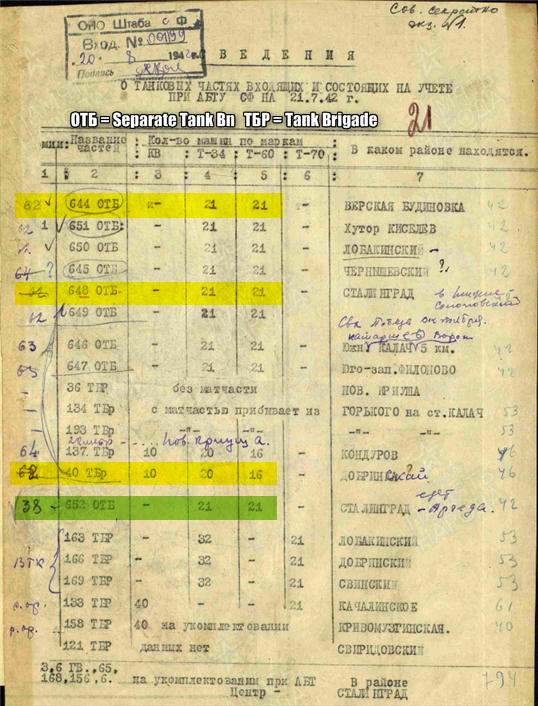 Сов. секретно
экз. №1.
ОПО Штаба СФ
Вход. № 00199
20. 8 1942 г.
Подпись
СВЕДЕНИЯ
О ТАНКОВЫХ ЧАСТЯХ ВХОДЯЩИХ И СОСТОЯЩИХ НА УЧЕТЕ
ПРИ АБТУ СФ НА 21.7.42 г.
21
ОТБ = Separate Tank Bn ТБР = Tank Brigade
Название частей. Кол-во машин по маркам В каком районе находятся.
КВ Т-34 Т-60 Т-70
1 2 3 4 5 6 7
62 644 ОТБ - 21 21 - ВЕРСКАЯ БУДИНОВКА 42
62 1 651 ОТБ: - 21 21 Хутор КИСЕЛЕВ 42
650 ОТБ - 21 21 ЛОБАКИНСКИЙ - 42
64 ? 645 ОТБ - 21 21 ЧЕРНЫШЕВСКИЙ ? 42
648 ОТБ - 21 21 СТАЛИНГРАД 42
62 649 ОТБ - 21 21
63 646 ОТБ - 21 21 Южн КАЛАЧ 5 км.
63 647 ОТБ - 21 21 Юго-зап. ФИЛОНОВО 42
- 36 ТБР без матчасти НОВ. КРИУША
- 134 ТБр с матчастью прибывает из ГОРЬКОГО на ст. КАЛАЧ 53
- 193 ТБр -"- -"-
64 137 ТБр 10 20 16 КОНДУРОВ 46
62 40 ТБр 10 20 16 ДОБРИНСКАЙ 46
38 652 ОТБ - 21 21 СТАЛИНГРАД - 42
163 ТБР - 32 - 21 ЛОБАКИНСКИЙ 53
ВТК 166 ТБР - 32 - 21 ДОБРИНСКИЙ 53
169 ТБР - 32 - 21 СВИНСКИЙ 53
р.гр. 133 ТБР 40 - - 21 КАЧАЛИНСКОЕ 61
р.гр. 158 ТБР 40 на укомплектовании КРИВОМУЗГИНСКАЯ. 40
121 ТБР данных нет СВИРИДОВСКИЙ
3,6 ГВ.,65, 168,156,6. на укомплектовании при АБТ Центр - В районе СТАЛИНГРАД
794